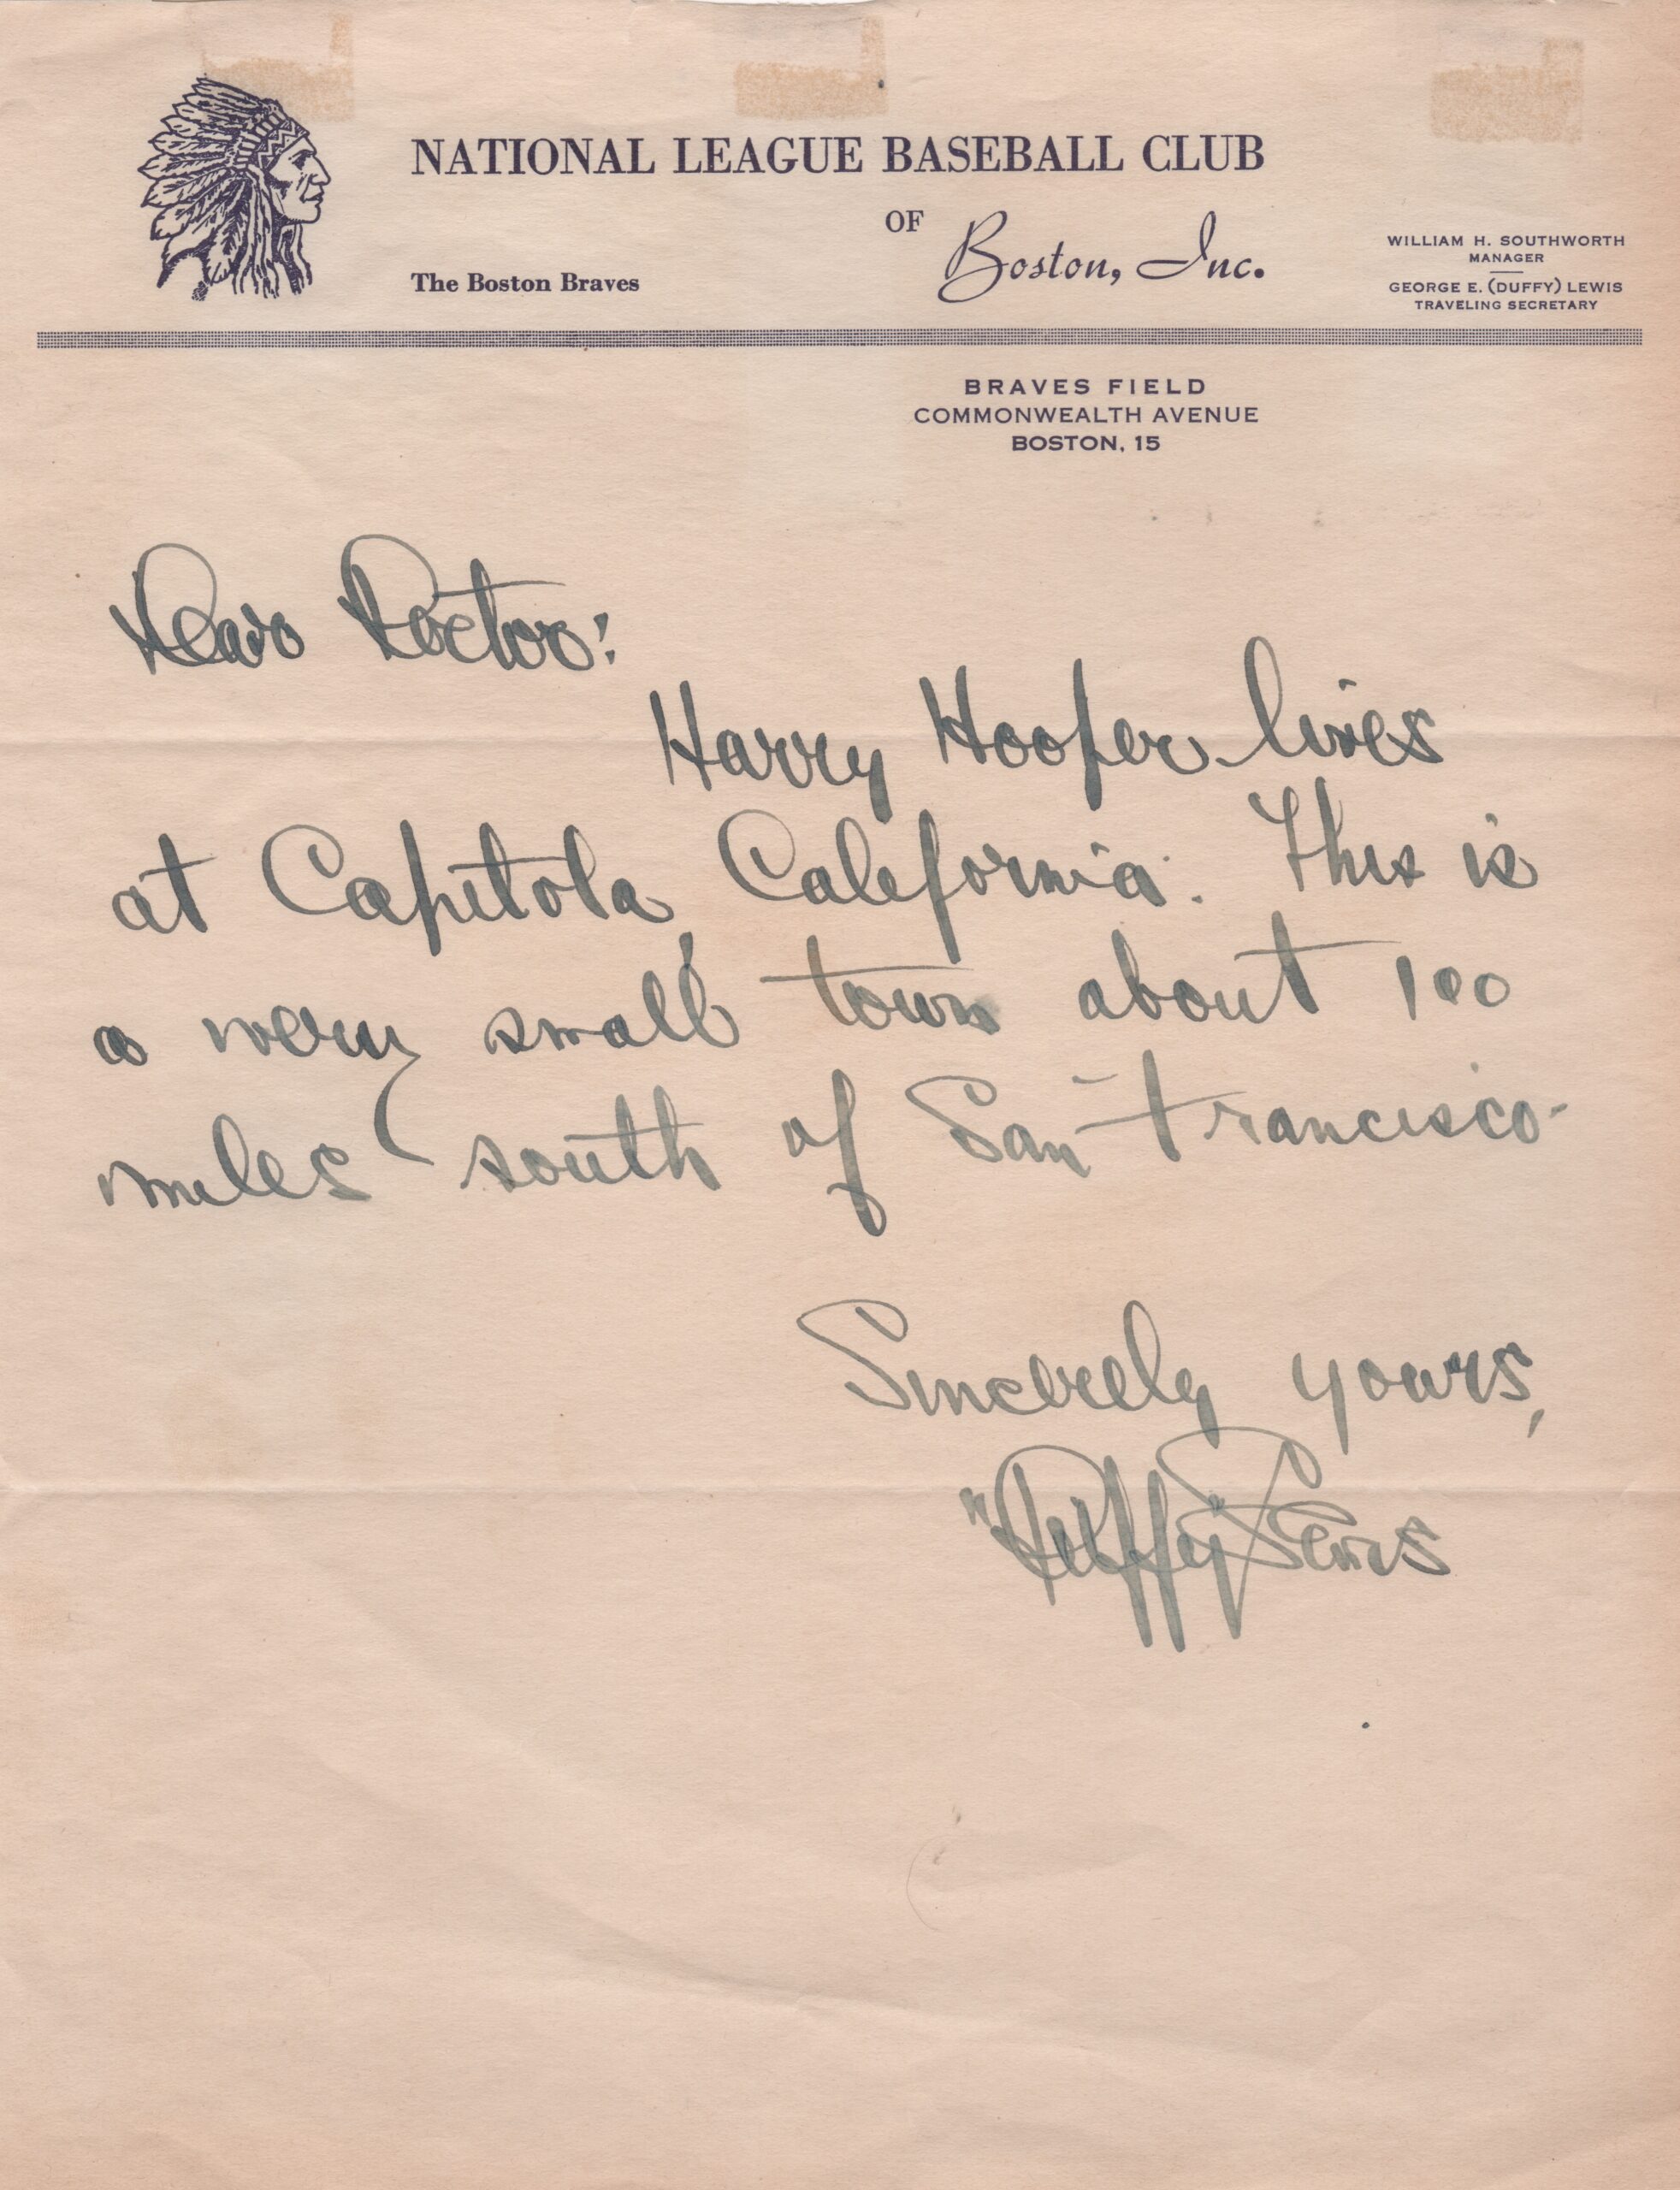 NATIONAL LEAGUE BASEBALL CLUB
OF Boston, Inc.
The Boston Braves
WILLIAM H. SOUTHWORTH
MANAGER
GEORGE E. (DUFFY) LEWIS
TRAVELING SECRETARY
BRAVES FIELD
COMMONWEALTH AVENUE
BOSTON, 15
Dear Doctor:
Harry Hooper lives
at Capitola, California. This is
a very small town about 100
miles south of San Francisco-
Sincerely yours,
"Duffy" Lewis